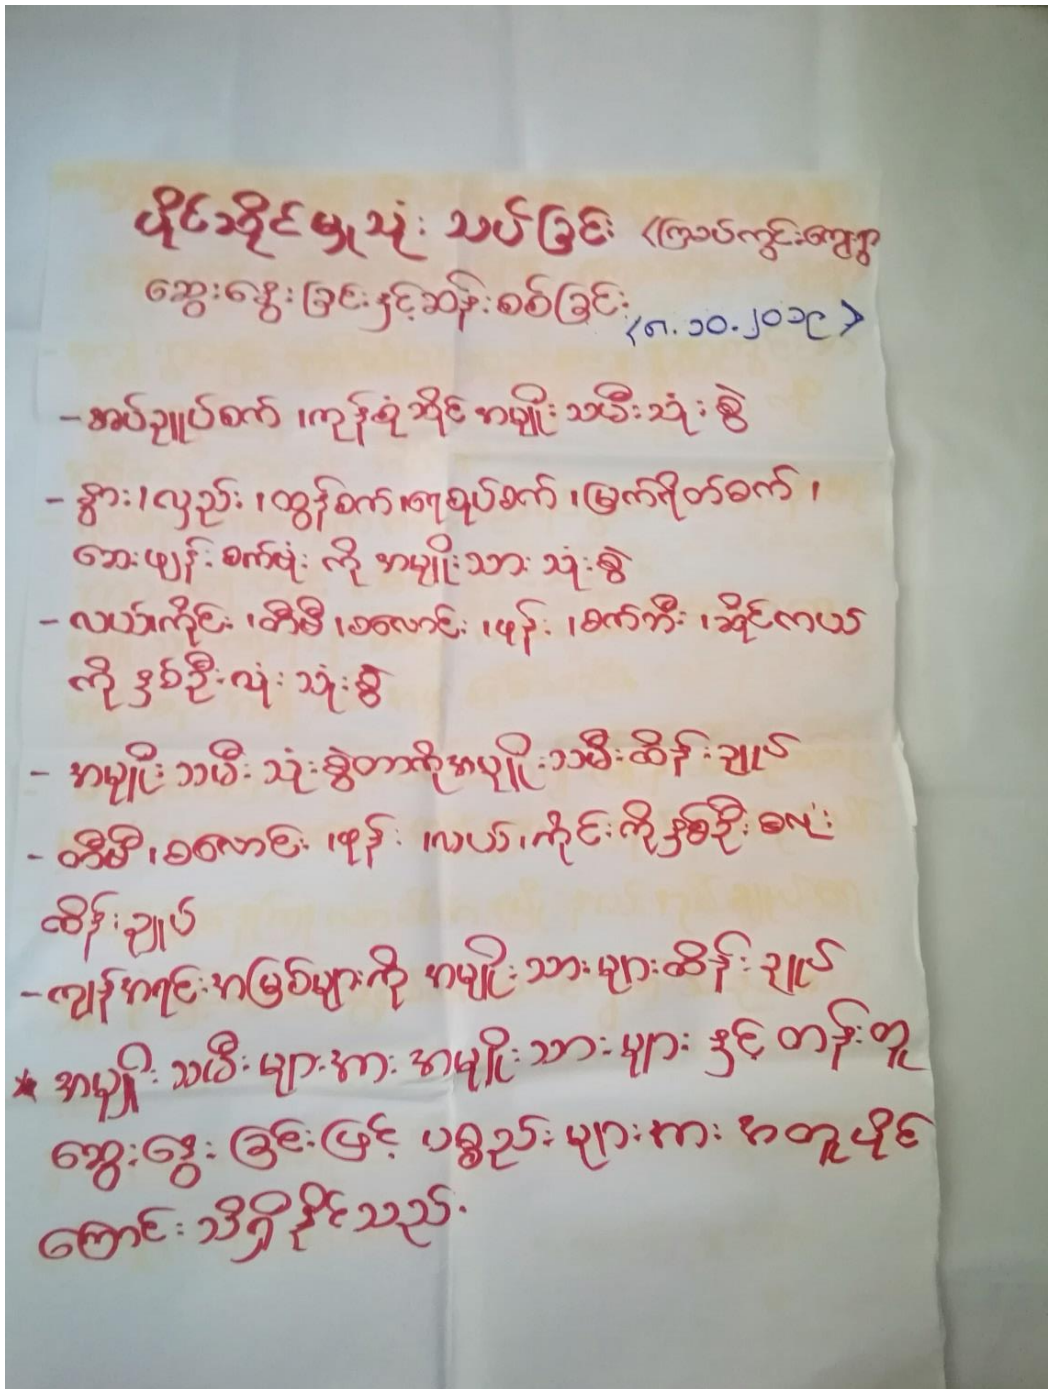 ပိုင်ဆိုင်မှုသုံးသပ်ခြင်း (ကြသပ်ကွင်းကျေးရွာ
ဆွေးနွေးခြင်းနှင့်ဆန်းစစ်ခြင်း
(၈.၁၀.၂၀၁၉)
- အပ်ချုပ်စက်၊ ကုန်စုံဆိုင် အမျိုးသမီးသုံးစွဲ
- နွား၊ လှည်း၊ ထွန်စက်၊ ရေစုပ်စက်၊ မြက်ရိတ်စက်၊
ဆေးဖျန်းစက်ပုံး ကို အမျိုးသားသုံးစွဲ
- လယ်၊ ကိုင်း၊ တီဗီ၊ စလောင်း၊ ဖုန်း၊ စက်ဘီး၊ ဆိုင်ကယ်
ကို နှစ်ဦးလုံးသုံးစွဲ
- အမျိုးသမီးသုံးစွဲတာကိုအမျိုးသမီးထိန်းချုပ်
- တီဗီ၊ စလောင်း၊ ဖုန်း၊ လယ်၊ ကိုင်းကိုနှစ်ဦးစလုံး
ထိန်းချုပ်
- ကျန်အရင်းအမြစ်များကို အမျိုးသားများထိန်းချုပ်
* အမျိုးသမီးများအား အမျိုးသားများနှင့် တန်းတူ
ဆွေးနွေးခြင်းဖြင့် ပစ္စည်းများအား အတူပိုင်
ကြောင်းသိရှိနိုင်သည်.